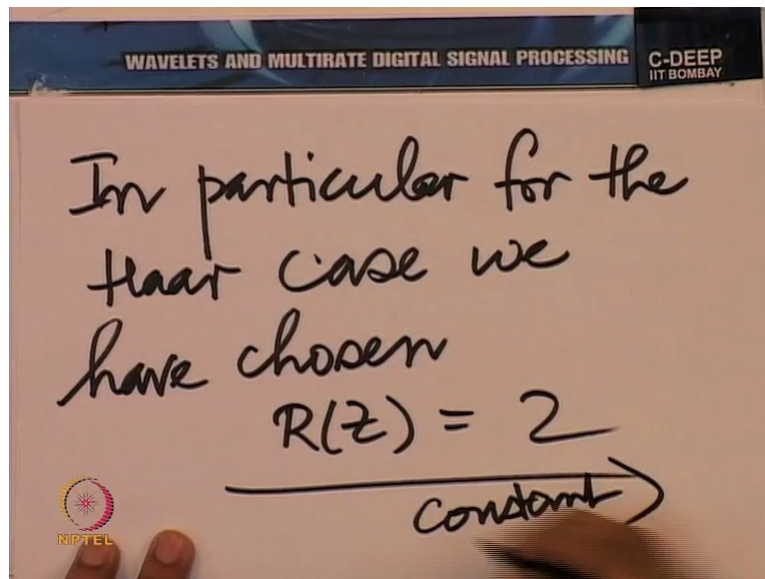 WAVELETS AND MULTIRATE DIGITAL SIGNAL PROCESSING
C-DEEP
IIT BOMBAY
In particular for the
Haar case we
have chosen
R(Z) = 2
constant
NPTEL